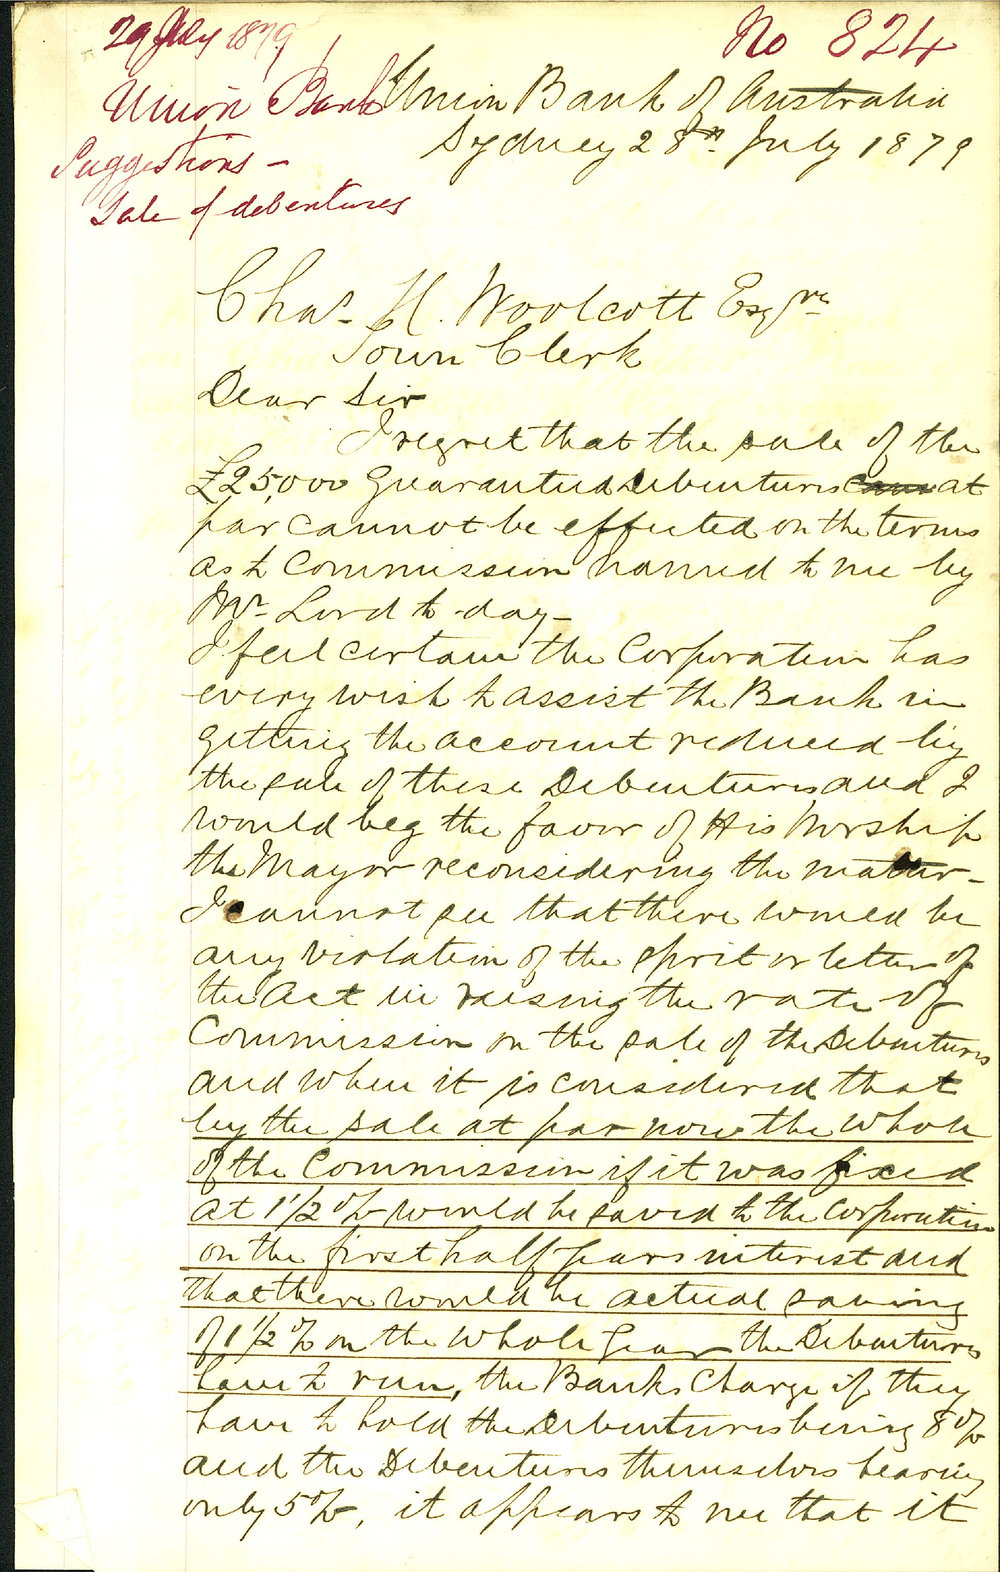 29 July 1879
No 824
Union Bank
Suggestions -
Sale of debentures
Union Bank of Australia
Sydney 28th July 1879
Chas. H. Woolcott Esqre
Town Clerk
Dear Sir
I regret that the sale of the
£25,000 Guaranteed Debentures at
par cannot be effected on the terms
as to Commission named to me by
Mr Lord to-day -
I feel certain the Corporation has
every wish to assist the Bank in
getting the account reduced by
the sale of these Debentures and I
would beg the favor of His Worship
the Mayor reconsidering the matter -
I cannot see that there would be
any violation of the spirit or letter of
the Act in raising the rate of
Commission on the sale of the Debentures
and when it is considered that
by the sale at par now the whole
of the Commission if it was fixed
at 1 1/2 % would be saved to the Corporation
on the first half years interest and
that there would be actual saving
of 1 1/2 % on the whole year the Debentures
have to run, the Banks charge if they
have to hold the Debentures being 8 %
and the Debentures themselves bearing
only 5 %, it appears to me that it